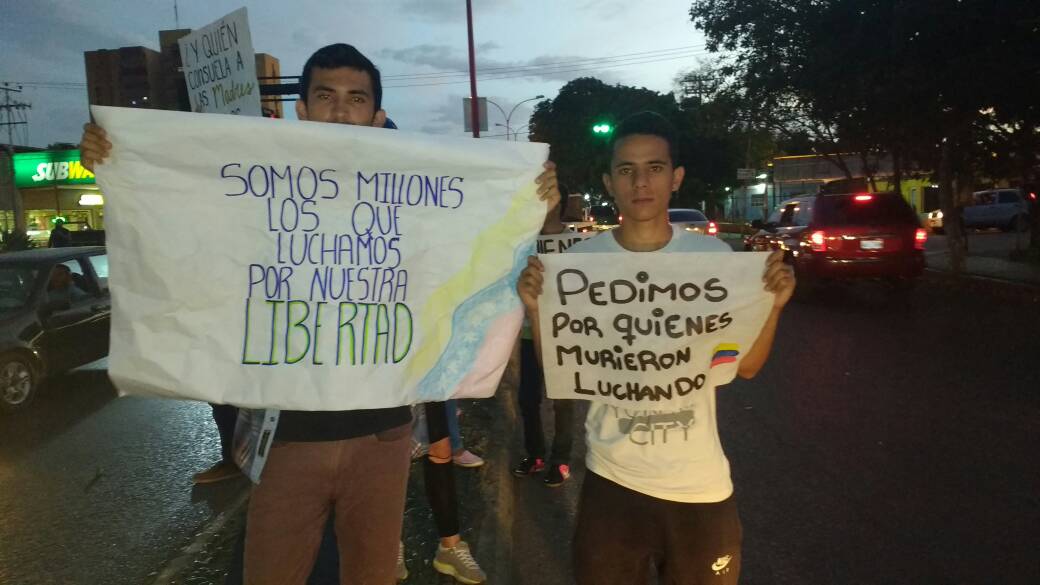 ¿Y QUIÉN
CONSUELA A
LAS Madres
SUBWAY
SOMOS MILLONES
LOS QUE
LUCHAMOS
POR NUESTRA
LIBERTAD
PEDIMOS
POR QUIENES
MURIERON
LUCHANDO
CITY